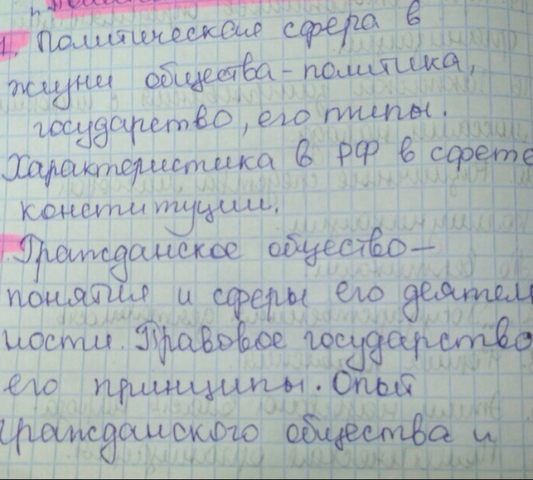 1. Политическая сфера в
жизни общества - политика,
государство, его типы.
Характеристика в РФ в сфете
конституции.
Гражданское общество —
понятия и сферы его деятель
ности. Правовое государство
его принципы. Опыт
гражданского общества и